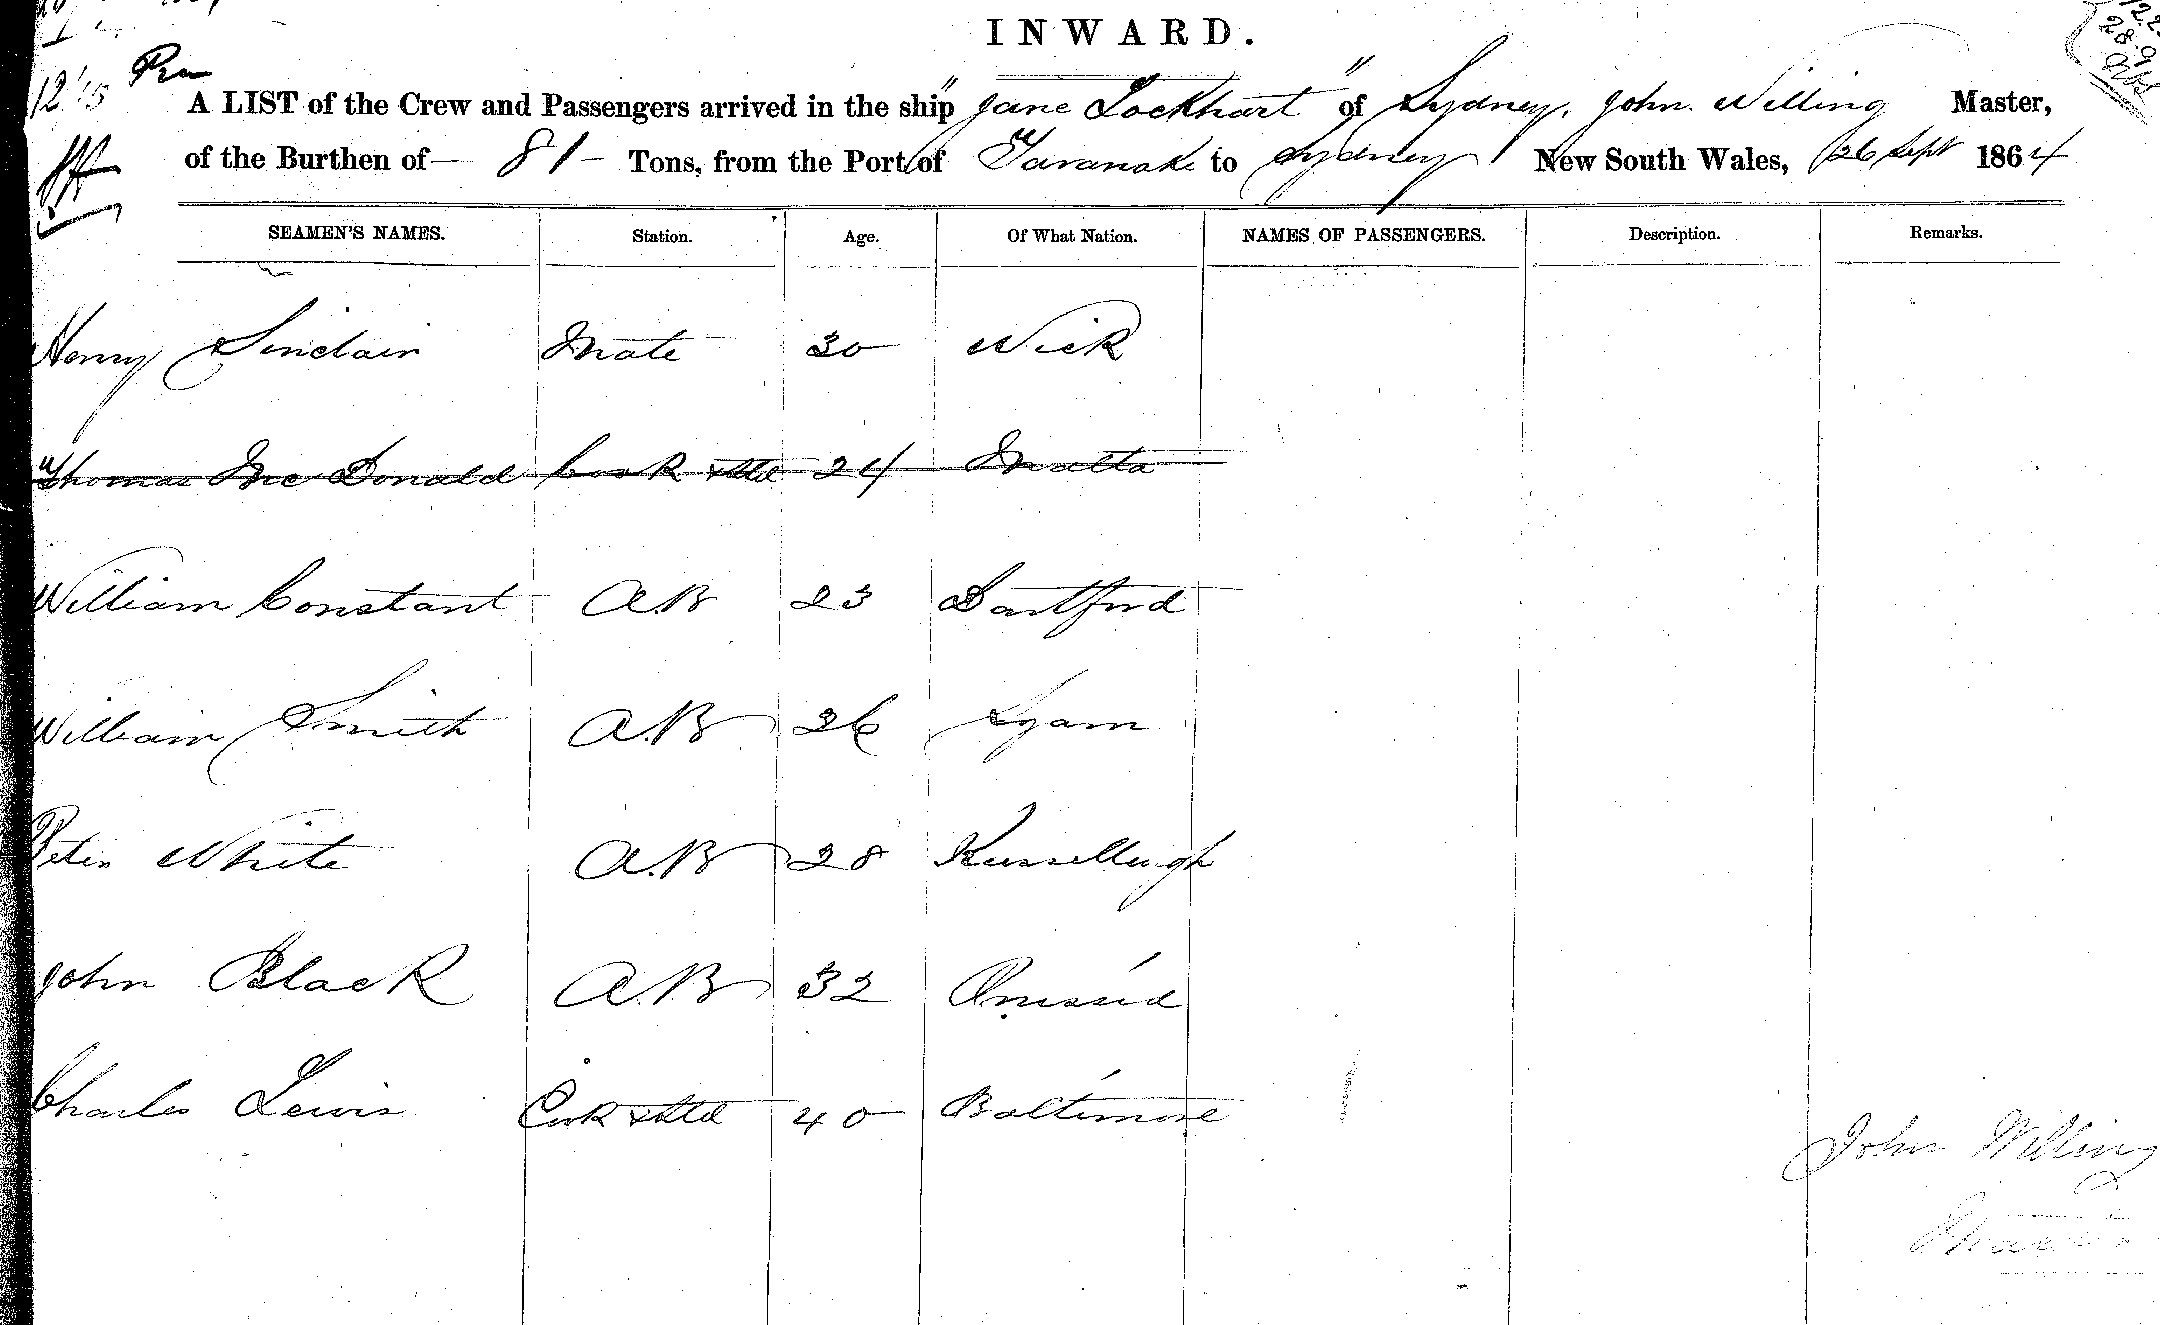 INWARD.
12.15 Pm
A LIST of the Crew and Passengers arrived in the ship "Jane Lockhart" of Sydney, John Willing Master,
of the Burthen of — 81 — Tons, from the Port of Taranaki to Sydney New South Wales, 26 Sept 1864
SEAMEN'S NAMES. Station. Age. Of What Nation. NAMES OF PASSENGERS. Description. Remarks.
Henry Sinclair Mate 30 Wick
Thomas McDonald Cook & Std 24 Malta
William Constant AB 23 Dartford
William Smith A.B 26
Peter White A.B 28
John Black A.B 32
Charles Lewis Cook & Std 40 Baltimore
John Willing